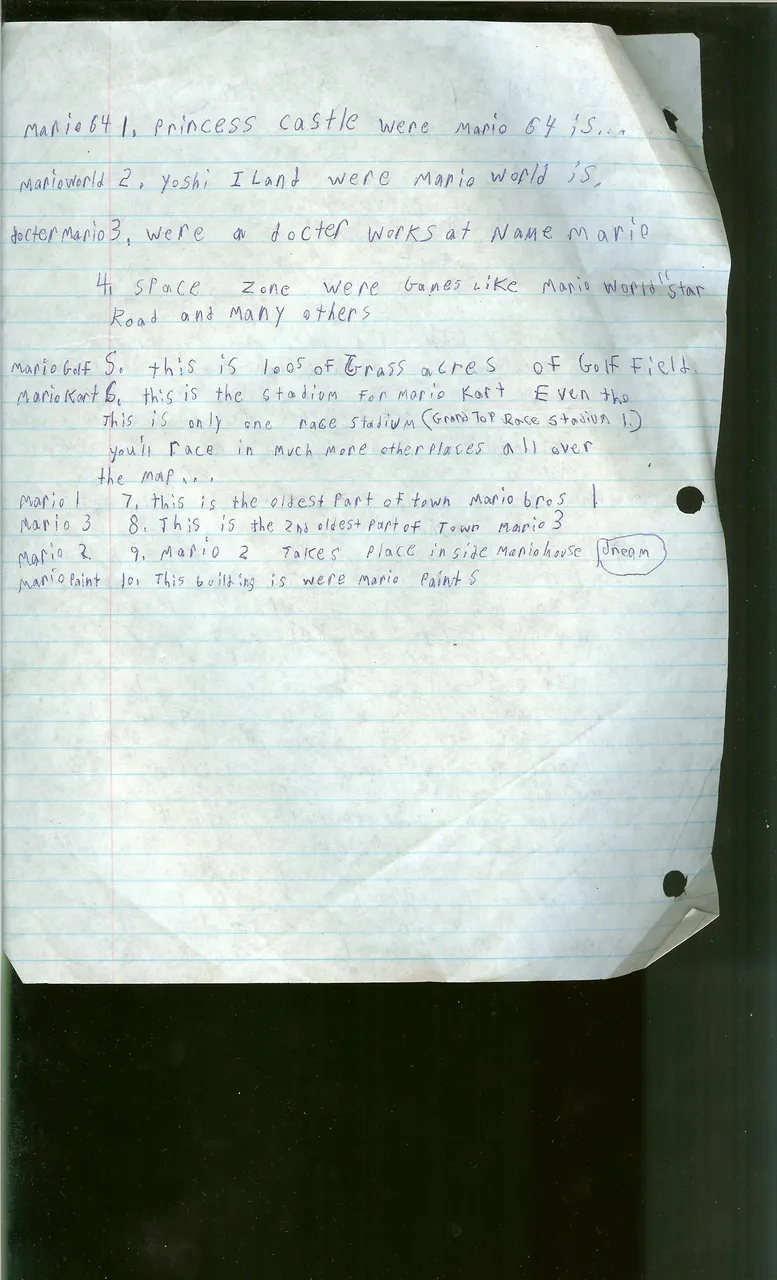 Mario 64 1. Princess Castle were Mario 64 is...
Mario World 2. Yoshi ILand were Mario World is.
docter Mario 3. were a docter works at Name Mario
4. Space Zone were Games Like Mario World "Star
Road and Many others
Mario Golf 5. this is 100s of Grass acres of Golf Field.
Mario Kart 6. this is the Stadium for Mario Kart Even tho
This is only one race Stadium (Grand Top Race Stadium 1.)
you'll race in much more other places all over
the map...
Mario 1 7. this is the oldest Part of town Mario bros 1
Mario 3 8. This is the 2nd oldest Part of Town Mario 3
Mario 2 9. Mario 2 Takes Place in side Mario house Dream
Mario Paint 10. This building is were Mario Paints